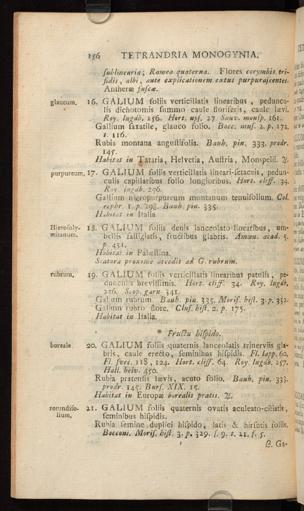 156 TETRANDRIA MONOGYNIA.
sublinearia; Ramea quaterna. Flores corymbis tri-
fidis, albi, ante explicationem extus purpurascentes.
Antheræ fuscæ.
glaucum. 16. GALIUM foliis verticillatis linearibus, peduncu-
lis dichotomis summo caule floriferis, caule lævi.
Roy. lugdb. 256. Hort. ups. 27. Sauv. monsp. 161.
Gallium saxatile, glauco folio. Bocc. mus. 2. p. 172.
t. 116.
Rubia montana angustifolia. Bauh. pin. 333. prodr.
145.
Habitat in Tataria, Helvetia, Austria, Monspelii. ♃.
purpureum. 17. GALIUM foliis verticillatis lineari-setaceis, pedun-
culis capillaribus folio longioribus. Hort. cliff. 34.
Roy. lugdb. 256.
Gallium nigropurpureum montanum tenuifolium. Col.
ecphr. 1. p. 298. Bauh. pin. 335.
Habitat in Italia
Hierosoly-
mitanum. 18. GALIUM foliis denis lanceolato-linearibus, um-
bellis fastigiatis, fructibus glabris. Amœn. acad.
p. 451.
Habitat in Palæstina.
Statura proxime accedit ad G. rubrum.
rubrum. 19. GALIUM foliis verticillatis linearibus patulis, pe-
dunculis brevissimis. Hort. cliff. 34. Roy. lugdb.
256.
Gallium rubrum. Bauh. pin. 335. Moris. hist. 3. p. 332.
Gallium rubro flore. Clus. hist. 2. p. 175.
Habitat in Italia.
* Fructu hispido.
boreale. 20. GALIUM foliis quaternis lanceolatis trinerviis gla-
bris, caule erecto, seminibus hispidis. Fl. lapp. 60.
Fl. suec. 118, 124. Hort. cliff. 34. Roy. lugdb. 257.
Hall. helv. 450.
Rubia pratensis lævis, acuto folio. Bauh. pin. 333.
prodr. 145. Burs. XIX. 15.
Habitat in Europæ borealis pratis. ♃.
rotundifo-
lium. 21. GALIUM foliis quaternis ovatis aculeato-ciliatis,
seminibus hispidis.
Rubia semine duplici hispido, latis & hirsutis foliis.
Boccone. Moris. hist. 3. p. 329. s. 9. t. 21. f. 5.
β. Ga-